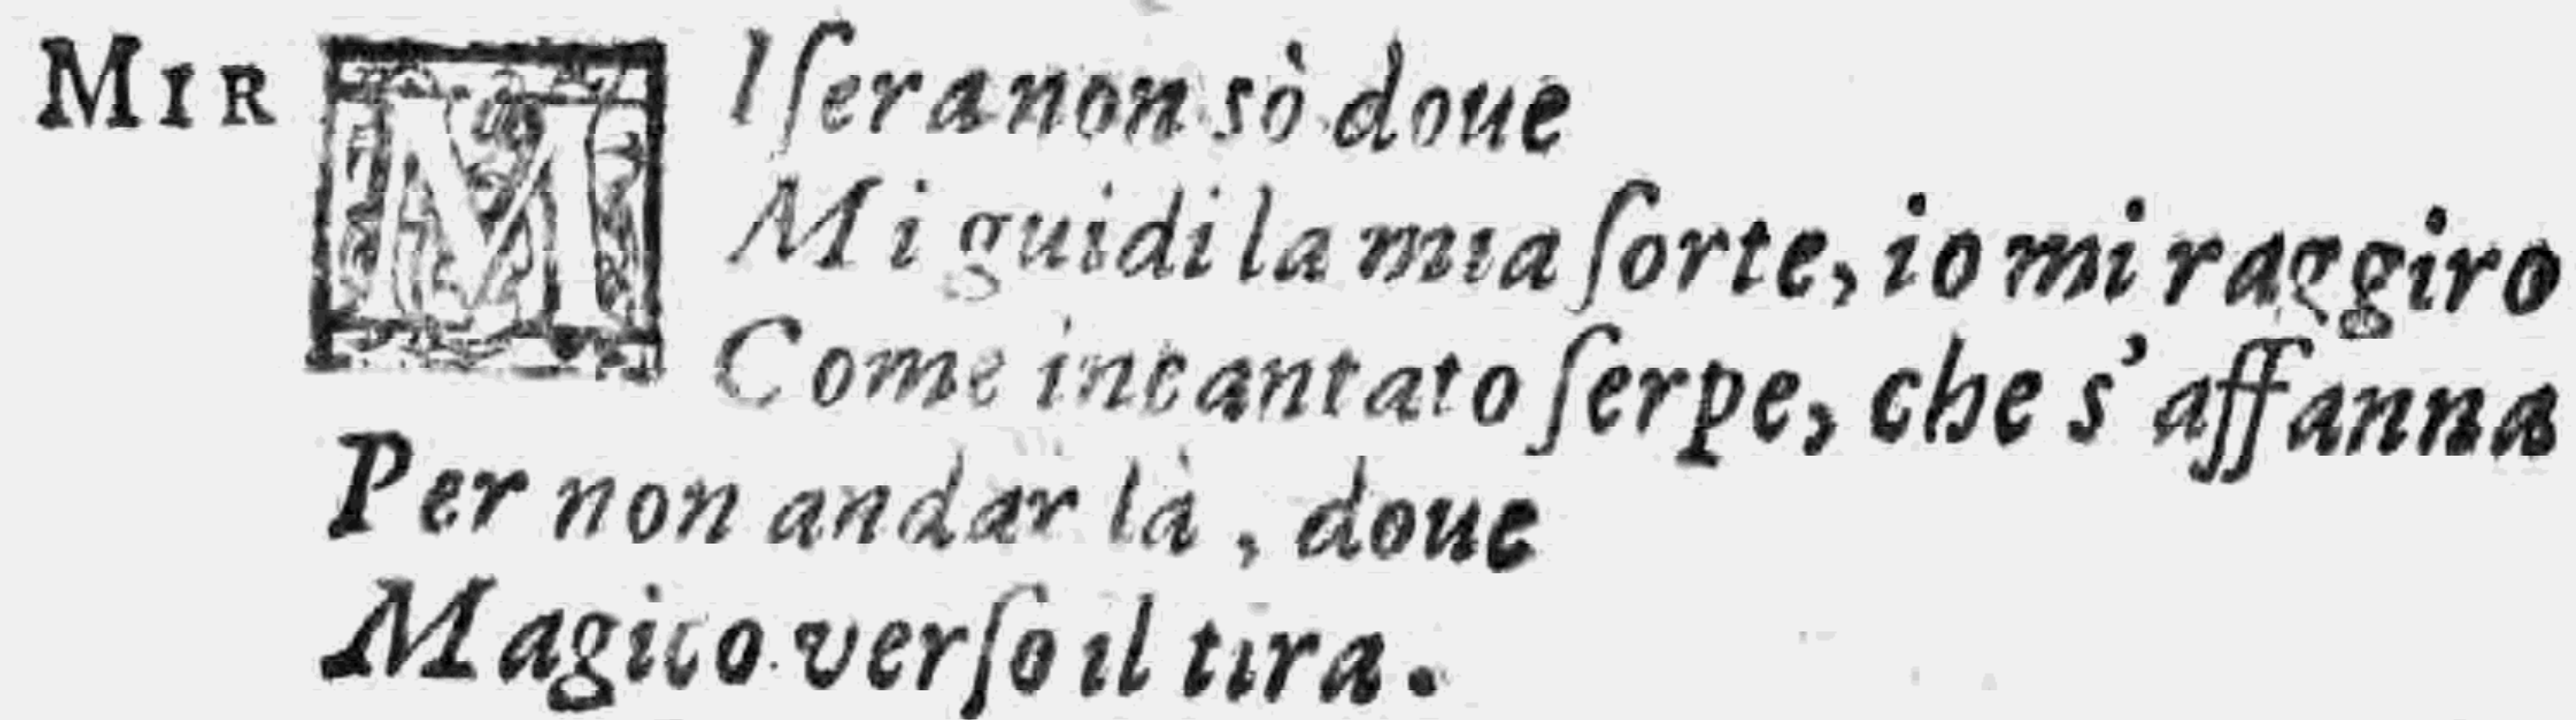 MIR MIſera non sò doue
Mi guidi la mia ſorte, io mi raggiro
Come incantato ſerpe, che s'affanna
Per non andar là, doue
Magico verſo il tira.